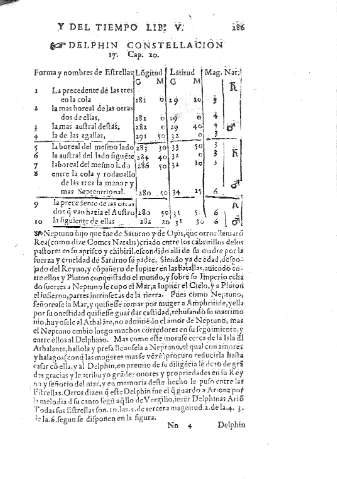 Y DEL TIEMPO LIB. V. 286
DELPHIN CONSTELLACION
17. Cap. 20.
Forma y nombres de Estrellas Lõgitud Latitud Mag. Nat.
G M G M
1 La precedente de las tres
en la cola 281 0 29 20 3 ♄
2 la mas boreal de las otras
dos de ellas, 281 0 29 0 4
3 la mas austral destas, 281 0 29 40 4 ♂
4 la de las agallas, 291 50 32 0 3
5 la boreal del mesmo lado 283 30 33 50 3
6 la austral del lado siguiẽte 284 40 32 0 3 ♄
7 la boreal del mesmo lado 286 50 32 3
8 entre la cola y
de las tres la menor y
mas Septentrional. 280 50 34 25 6
9 la precedente de las otras
dos q̃ van hazia el Austro 280 50 31 6
10 la siguiente de ellas 282 30 31 6 ♂
Neptuno hijo que fue de Saturno y de Opis, que otros llamarõ
Rea (como dize Comes Natalis) criado entre los cabritillos de los
pastores en su aprisco y cabãril, escondido alli de su madre por la
fuerza y crueldad de Saturno su padre. Siendo ya de edad, despo-
jado del Reyno, y cõpañero de Iupiter en las batallas, auiẽdo
ellos y Pluton conquistado el mundo, y sobre su Imperio echa
do suertes a Neptuno le cupo el Mar, a Iupiter el Cielo, y a Pluton
el infierno, partes intrinsecas de la tierra. Pues como Neptuno,
señoreasse la Mar, y quisiesse tomar por muger a Amphitrite, y ella
por su honestidad quisiesse guardar castidad, rehusando su matrimo
nio, huyose al Athalante, no admitiẽdo el amor de Neptuno, mas
el Neptuno embio luego muchos corredores en su seguimiento, y
entre ellos al Delphino. Mas como este morase cerca de la Isla de
Athalante, hallola y
y halagos (con q̃ las mugeres mas se vẽcẽ) procuro reducirla hasta
casar cõ ella, y al Delphin, en premio de su diligẽcia le dio
des gracias y le atribuyo grãdes honores y propiedades en su Rey
no y señorio del mar, y en memoria deste hecho le puso entre las
Estrellas. Otros dizen q̃ este Delphin fue el q̃ guardo a Arion por
la melodia d̃ su canto segũ aq̃llo de Vergilio, inter Delphinas Ariõ
Todas sus Estrellas son .10. las .5. de tercera magnitud .2. de la 4. 3.
de la 6. segun se disponen en la figura.
Nn 4 Delphin